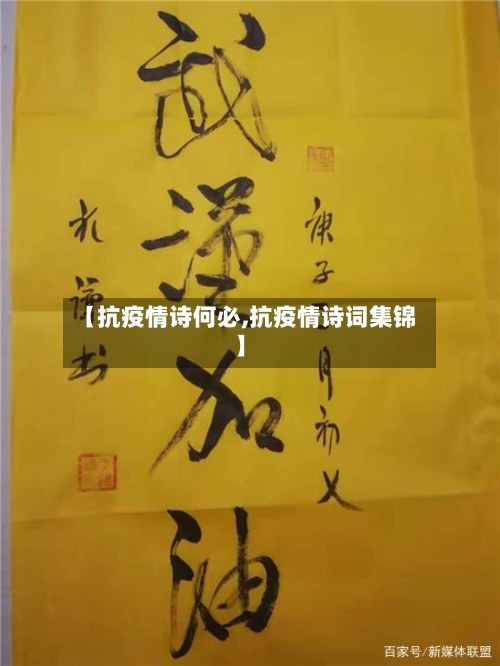 武漢加油
庚子正月初
礼谦书
【抗疫情诗何必,抗疫情诗词集锦
】
百家号/新媒体联盟